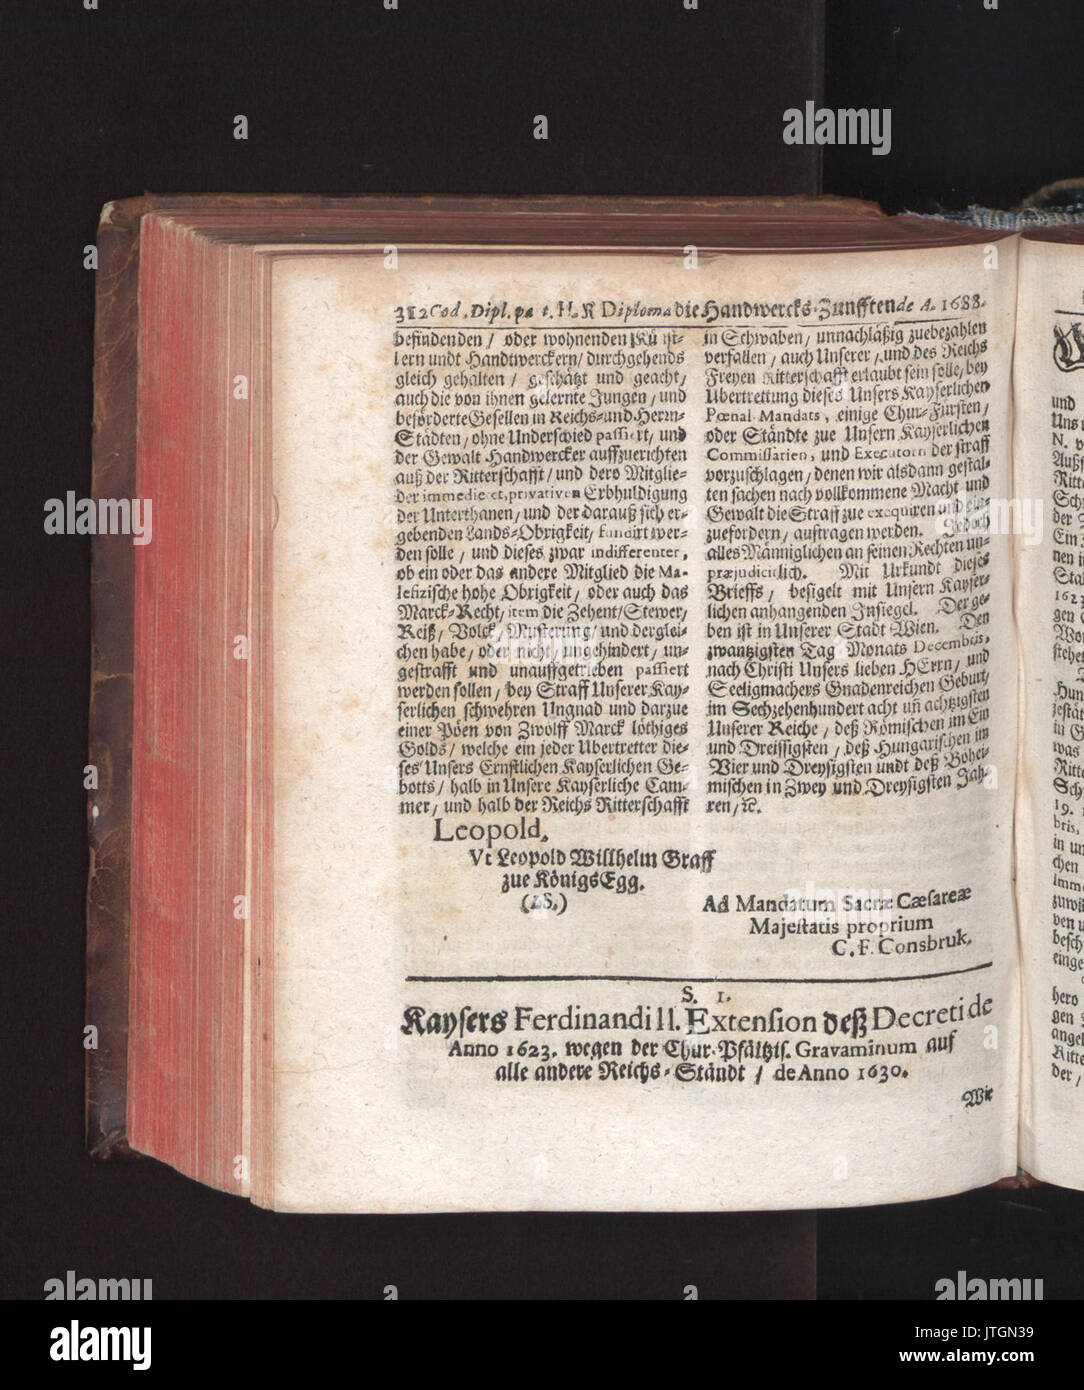 312 Cod. Dipl. pa t. H. R Diploma die Handwercks-Zunfften de A. 1688.
befindenden / oder wohnenden Kü st-
lern undt Handtwerckern / durchgehends
gleich gehalten / geschätzt und geacht /
auch die von ihnen gelernte Jungen / und
beförderte Gesellen in Reichs- und Herrn-
Städten / ohne Underschied passiert / und
der Gewalt Handwercker auffzuerichten
auß der Ritterschafft / und dero Mitglie-
der immediè et, privativen Erbhuldigung
der Unterthanen / und der darauß sich er-
gebenden Lands-Obrigkeit / fundirt wer-
den solle / und dieses zwar indifferenter,
ob ein oder das andere Mitglied die Ma-
lefizische hohe Obrigkeit / oder auch das
Marck-Recht / item die Zehent / Stewer /
Reiß / Volck / Musterung / und derglei-
chen habe / oder nicht / ungehindert / un-
gestrafft und unauffgetrieben passiert
werden sollen / bey Straff Unserer Kay-
serlichen schwehren Ungnad und darzue
einer Pöen von Zwölff Marck löthiges
Golds / welche ein jeder Ubertretter die-
ses Unsers Ernstlichen Kayserlichen Ge-
botts / halb in Unsere Kayserliche Cam-
mer / und halb der Reichs Ritterschafft
in Schwaben / unnachläßig zuebezahlen
verfallen / auch Unserer / und des Reichs
Freyen Ritterschafft erlaubt sein solle / bey
Ubertrettung dieses Unsers Kayserlichen
Pœnal-Mandats, einige Chur-Fürsten /
oder Ständte zue Unsern Kayserlichen
Commissarien, und Executorn der straff
vorzuschlagen / denen wir alsdann gestal-
ten sachen nach vollkommene Macht und
Gewalt die Straff zue exequiren und ein-
zuefordern / auftragen werden. Jedoch
alles Männiglichen an seinen Rechten un-
præjudicirlich. Mit Urkundt dieses
Brieffs / besigelt mit Unsern Kayser-
lichen anhangenden Insiegel. Der ge-
ben ist in Unserer Stadt Wien. Den
zwantzigsten Tag Monats Decembris,
nach Christi Unsers lieben HErrn / und
Seeligmachers Gnadenreichen Geburt /
im Sechzehenhundert acht uñ achtzigsten
Unserer Reiche / deß Römischen im Ein
und Dreissigsten / deß Hungarischen im
Vier und Dreysigsten undt deß Böhei-
mischen in Zwey und Dreysigsten Jah-
ren / ꝛc.
Leopold.
Vt Leopold Willhelm Graff
zue KönigsEgg.
(LS.)
Ad Mandatum Sacræ Cæsareæ
Majestatis proprium
C. F. Consbruk.
S. 1.
Kaysers Ferdinandi II. Extension deß Decreti de
Anno 1623. wegen der Chur-Pfältzis. Gravaminum auf
alle andere Reichs-Ständt / de Anno 1630.
Wie
und
Uns
N. v
Auß
Ritte
Sch
der
Ein
nen i
1623
gen C
Wo
stehe
Hun
jestät
in G
was
Ritte
Sch
19.
bris,
in un
achen
imme
zuwi
ben u
besch
einge
hero
gen
angel
Ritte
der /
alamy
a
alamy stock photo
Image ID: JTGN39
www.alamy.com